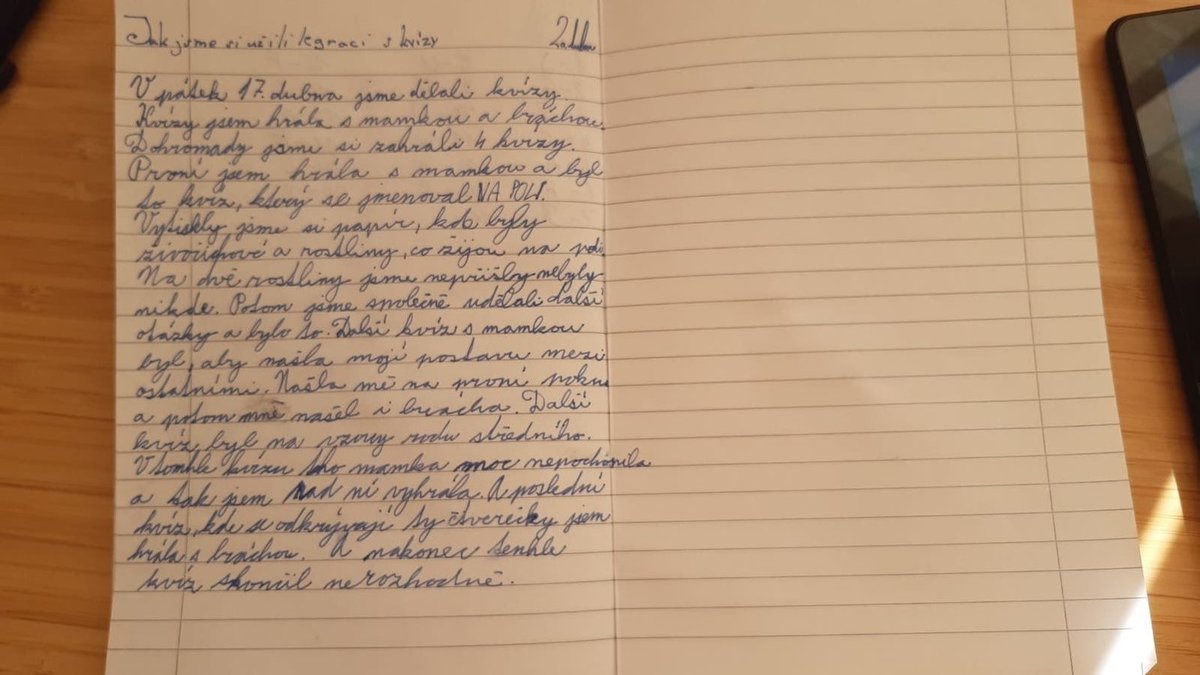 Jak jsme si užili legraci s kvízy
V pátek 17. dubna jsme dělali kvízy.
Kvízy jsem hrála s mamkou a bráchou.
Dohromady jsme si zahráli 4 kvízy.
První jsem hrála s mamkou a byl
to kvíz, který se jmenoval NA POLI.
Vytiskly jsme si papír, kde byly
živočichové a rostliny, co žijou na poli.
Na dvě rostliny jsme nepřišly nebyly
nikde. Potom jsme společně udělali další
otázky a bylo to. Další kvíz s mamkou
byl, aby našla mojí postavu mezi
ostatními. Našla mě na první pokus
a potom mně našel i brácha. Další
kvíz byl na vzory rodu středního.
V tomhle kvízu to mamka moc nepochopila
a tak jsem nad ní vyhrála. A poslední
kvíz, kde se odkrývají ty čtverečky jsem
hrála s bráchou. A nakonec tenhle
kvíz skončil nerozhodně.